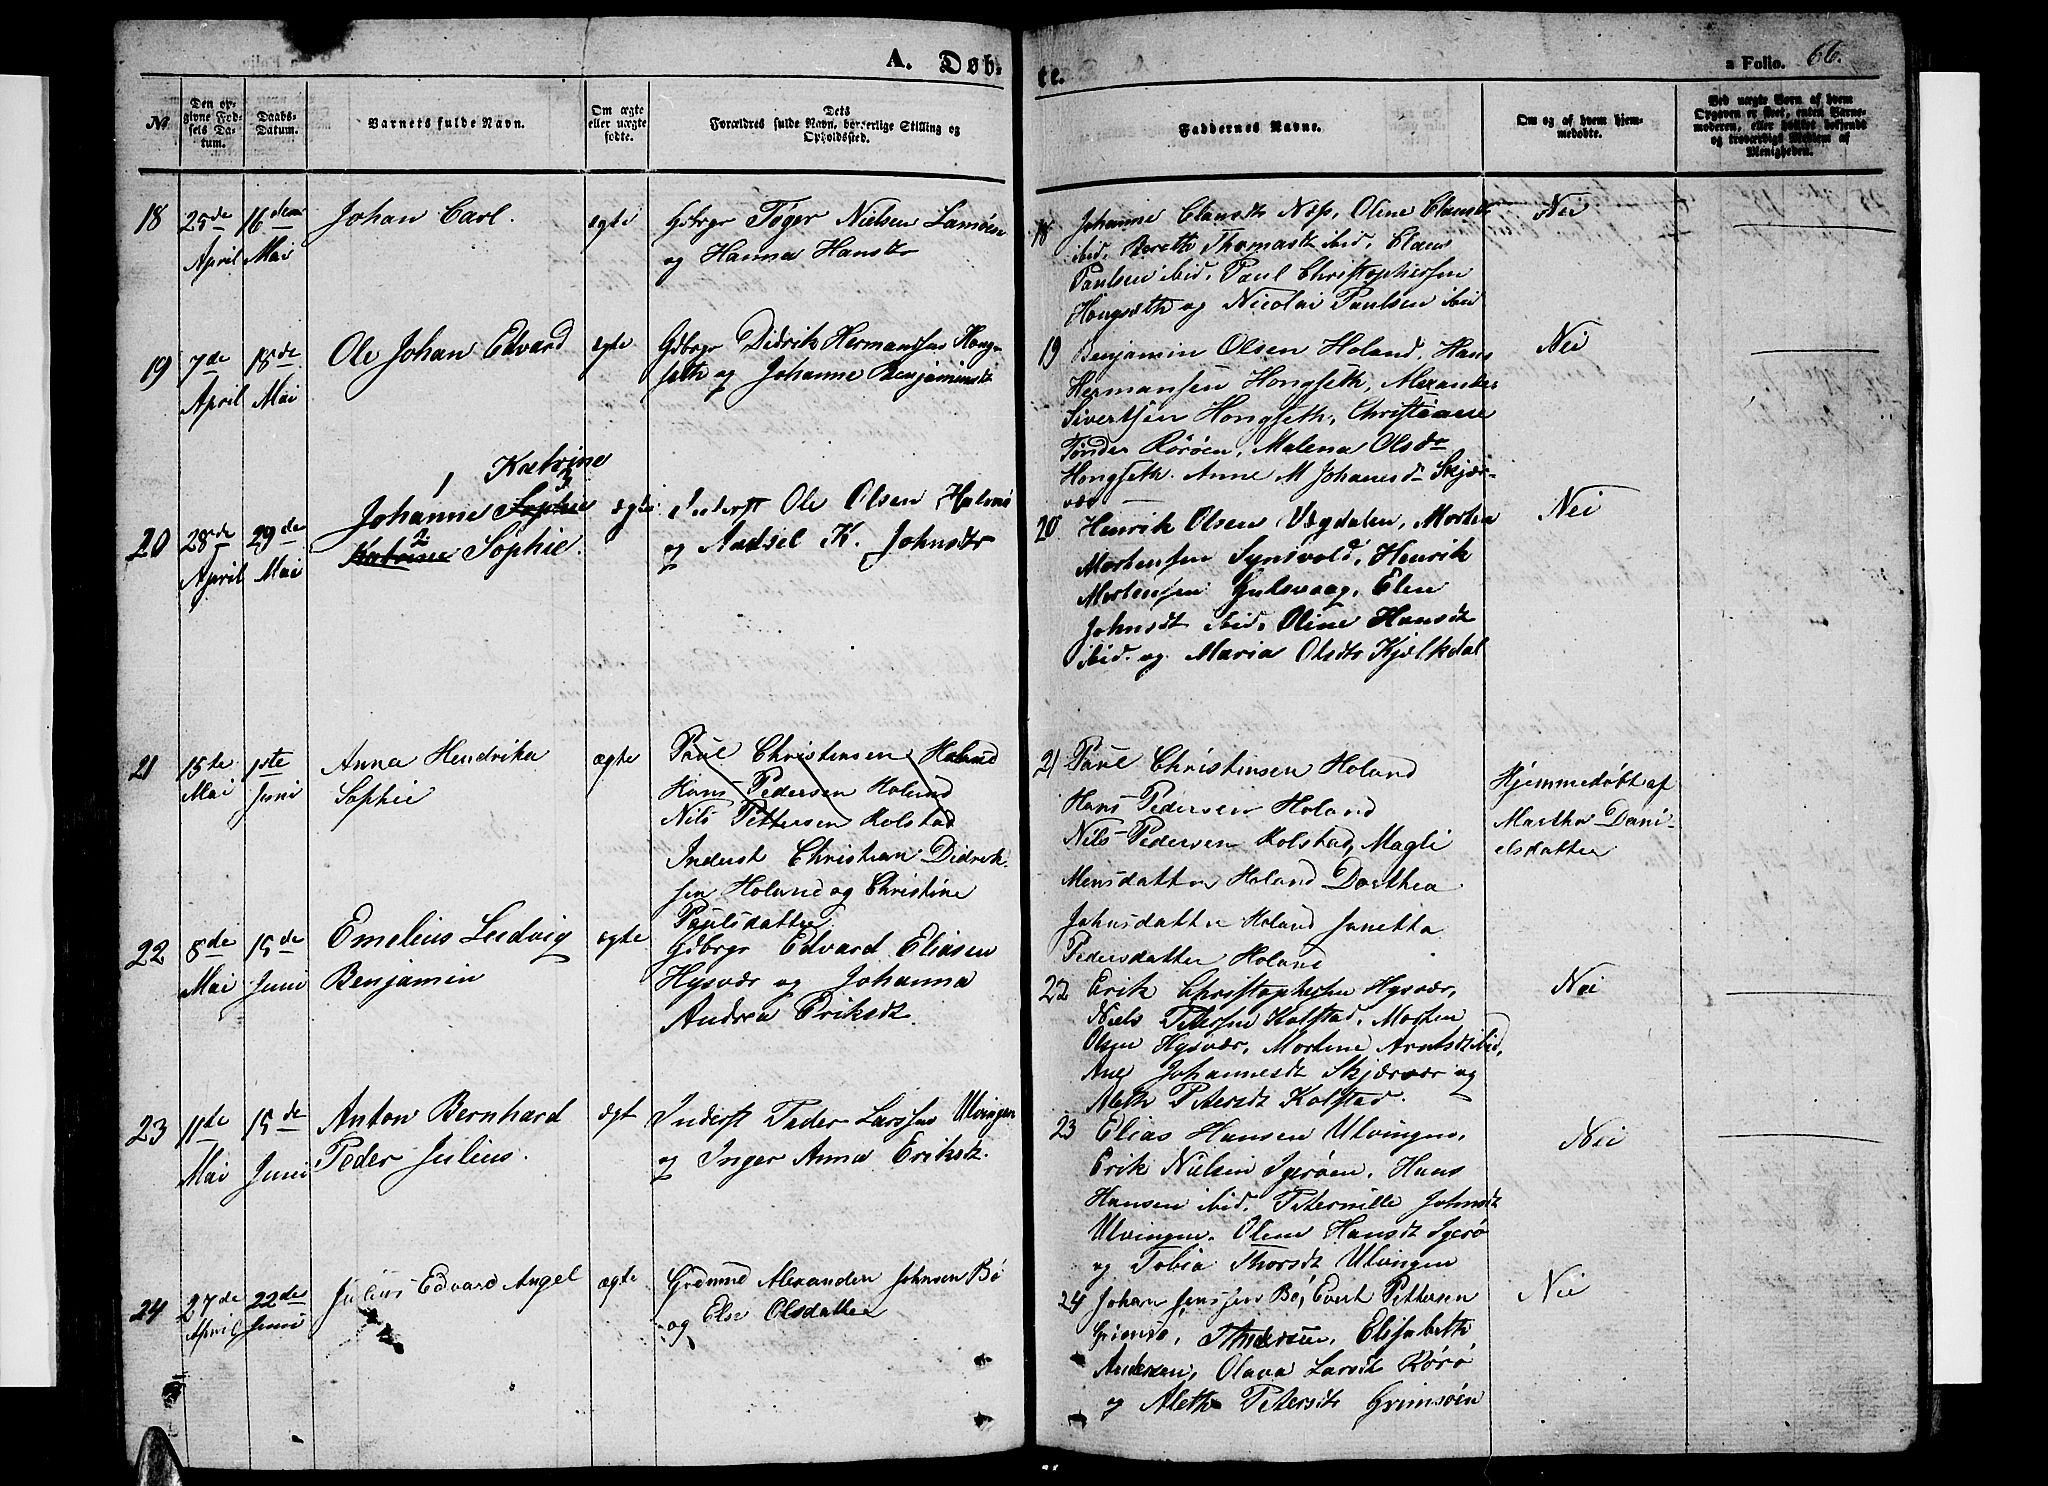 A. Døb-
te.
a Folio. 66.
No
Den op-
givne Fød-
sels Da-
tum.
Daabs-
Datum.
Barnets fulde Navn.
Om ægte
eller uægte
fødte.
Dets
Forældres fulde Navn, borgerlige Stilling og
Opholdssted.
Faddernes Navne.
Om og af hvem hjem-
medøbte.
Ved uægte Børn af hvem
Opgaven er skeet, enten Barne-
moderen, eller hvilket bekjendt
og troværdigt Medlem af
Menigheden.
18
25de
April
16den
Mai
Johan Carl.
ægte
Gdbrgr Tøger Nielsen Lamøen
og Hanna Hansdr
18
Johanne Clausdr Næs, Oline Clausdr
ibid, Bereth Thomasdt ibid, Claus
Paulsen ibid, Paul Christophersen
Hongsæth og Nicolai Paulsen ibid
Nei
19
7de
April
18de
Mai
Ole Johan Edvard
ægte
Gdbrgr Didrik Hermansen Hong-
seth og Johanne Benjaminsdr
19
Benjamin Olsen Holand, Hans
Hermansen Hongseth, Alexander
Sivertsen Hongseth, Christianne
Tønder Rørøen, Malena Olsdr
Hongseth. Anne M Johansdr Skjær-
vær
Nei
20
28de
April
29de
Mai
1 Katrine
3
Johanne Sophie
2
Katrine Sophie.
ægte
Inderst Ole Olsen Halmø
og Andsel K. Johnsdr
20
Henrik Olsen Vægdalen, Morten
Mortensen Synsvold, Henrik
Mortensen Gulsvaag, Elen
Johnsdt ibid, Oline Hansdt
ibid. og Maria Olsdtr Kjelkdal
Nei
21
15te
Mai
1ste
Juni
Anna Hendrika
Sophie
ægte
Paul Christensen Holand
Hans Pedersen Holand
Nils Pettersen Kolstad
Inderst Christian Didrik-
sen Holand og Christine
Paulsdatter
21
Paul Christensen Holand
Hans Pedersen Holand
Nils Pedersen Kolstad, Magli
Mensdatter Holand Dorthea
Johnsdatter Holand Janetta
Pedersdatter Holand
Hjemmedøbt af
Martha Dani-
elsdatter
22
8de
Mai
15de
Juni
Emelius Ludvig
Benjamin
ægte
Gdbrgr Edvard Eliasen
Hysvær og Johanna
Andrea Eriksdt.
22
Erik Christophersen Hysvær,
Niels Petersen Kolstad, Morten
Olsen Hysvær, Mortine Arntsdt ibid,
Ane Johannesdt Skjærvær og
Aleth Petersdt Kolstad.
Nei
23
11te
Mai
15de
Juni
Anton Bernhard
Peder Julius.
ægt
Inderst Peder Larssen Ulvingen
og Inger Anna Eriksdt.
23
Elias Hansen Ulvingen,
Erik Nielsen Igerøen, Hans
Hansen ibid, Peternille Johnsdt
Ulvingen, Olene Hansdt Igerø
og Tobia Thorsdt Ulvingen
Nei
24
27de
April
22de
Juni
Julius Edvard Angel
ægte
Grdmnd Alexander Johnsen Bø
og Else Olsdatter
24
Johan Jenssen Bø, Evert Pettersen
Grimsø, Andersen, Elisabeth
Andersen, Olava Larsdt Rørø
og Aleth Petersdtr Grimsøen
Nei